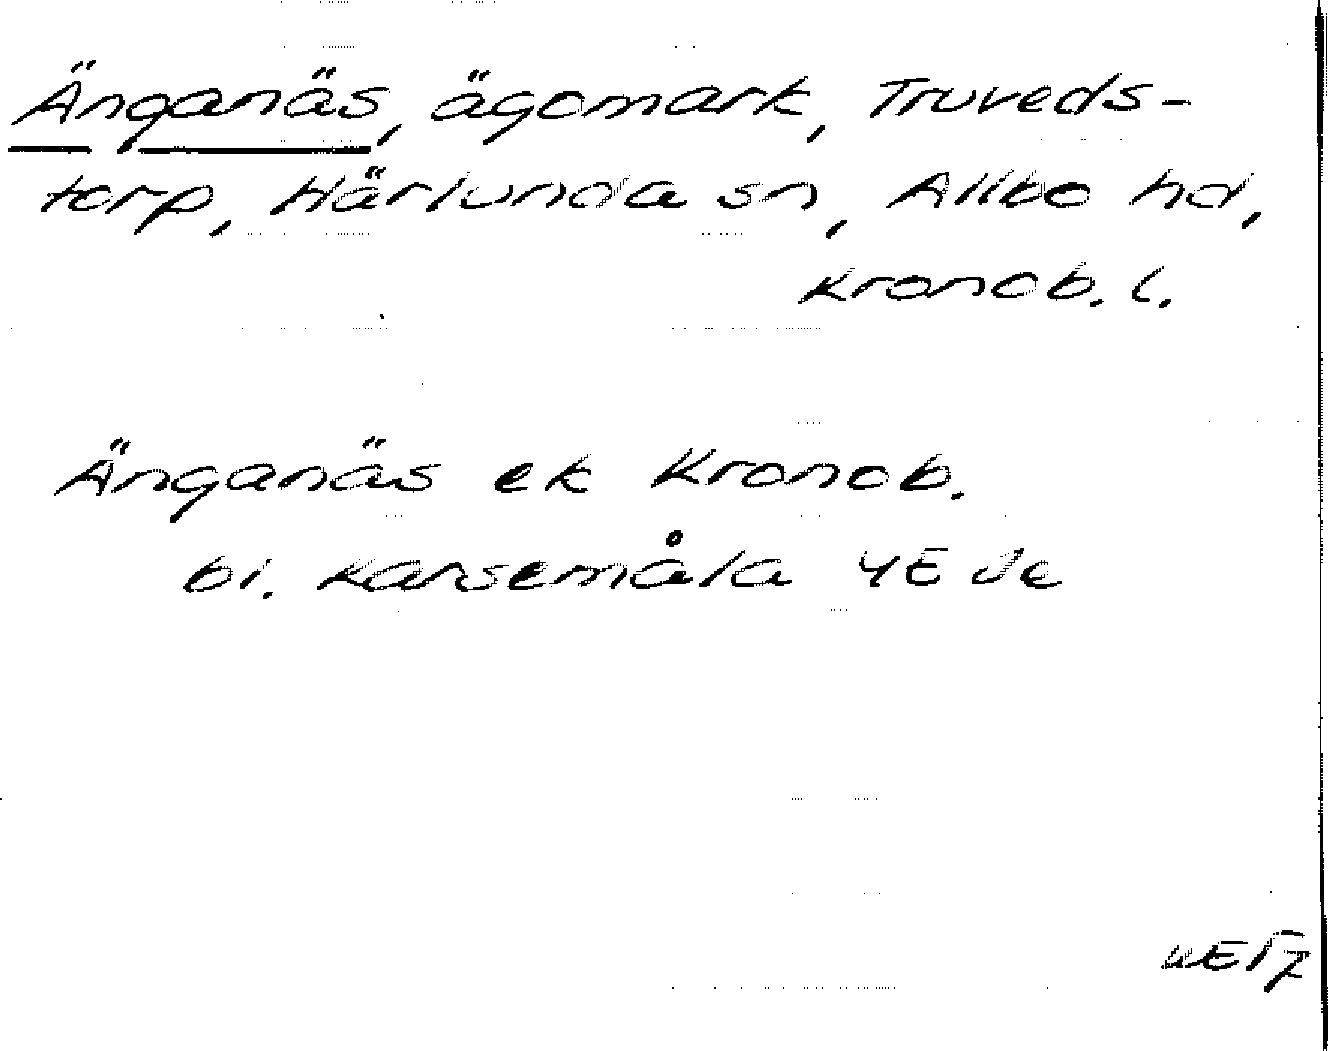 Änganäs, ägomark, Truveds-
torp, Härlunda sn, Allbo hd,
Kronob. l.
Änganäs ek Kronob.
bl. Karsemåla 4E